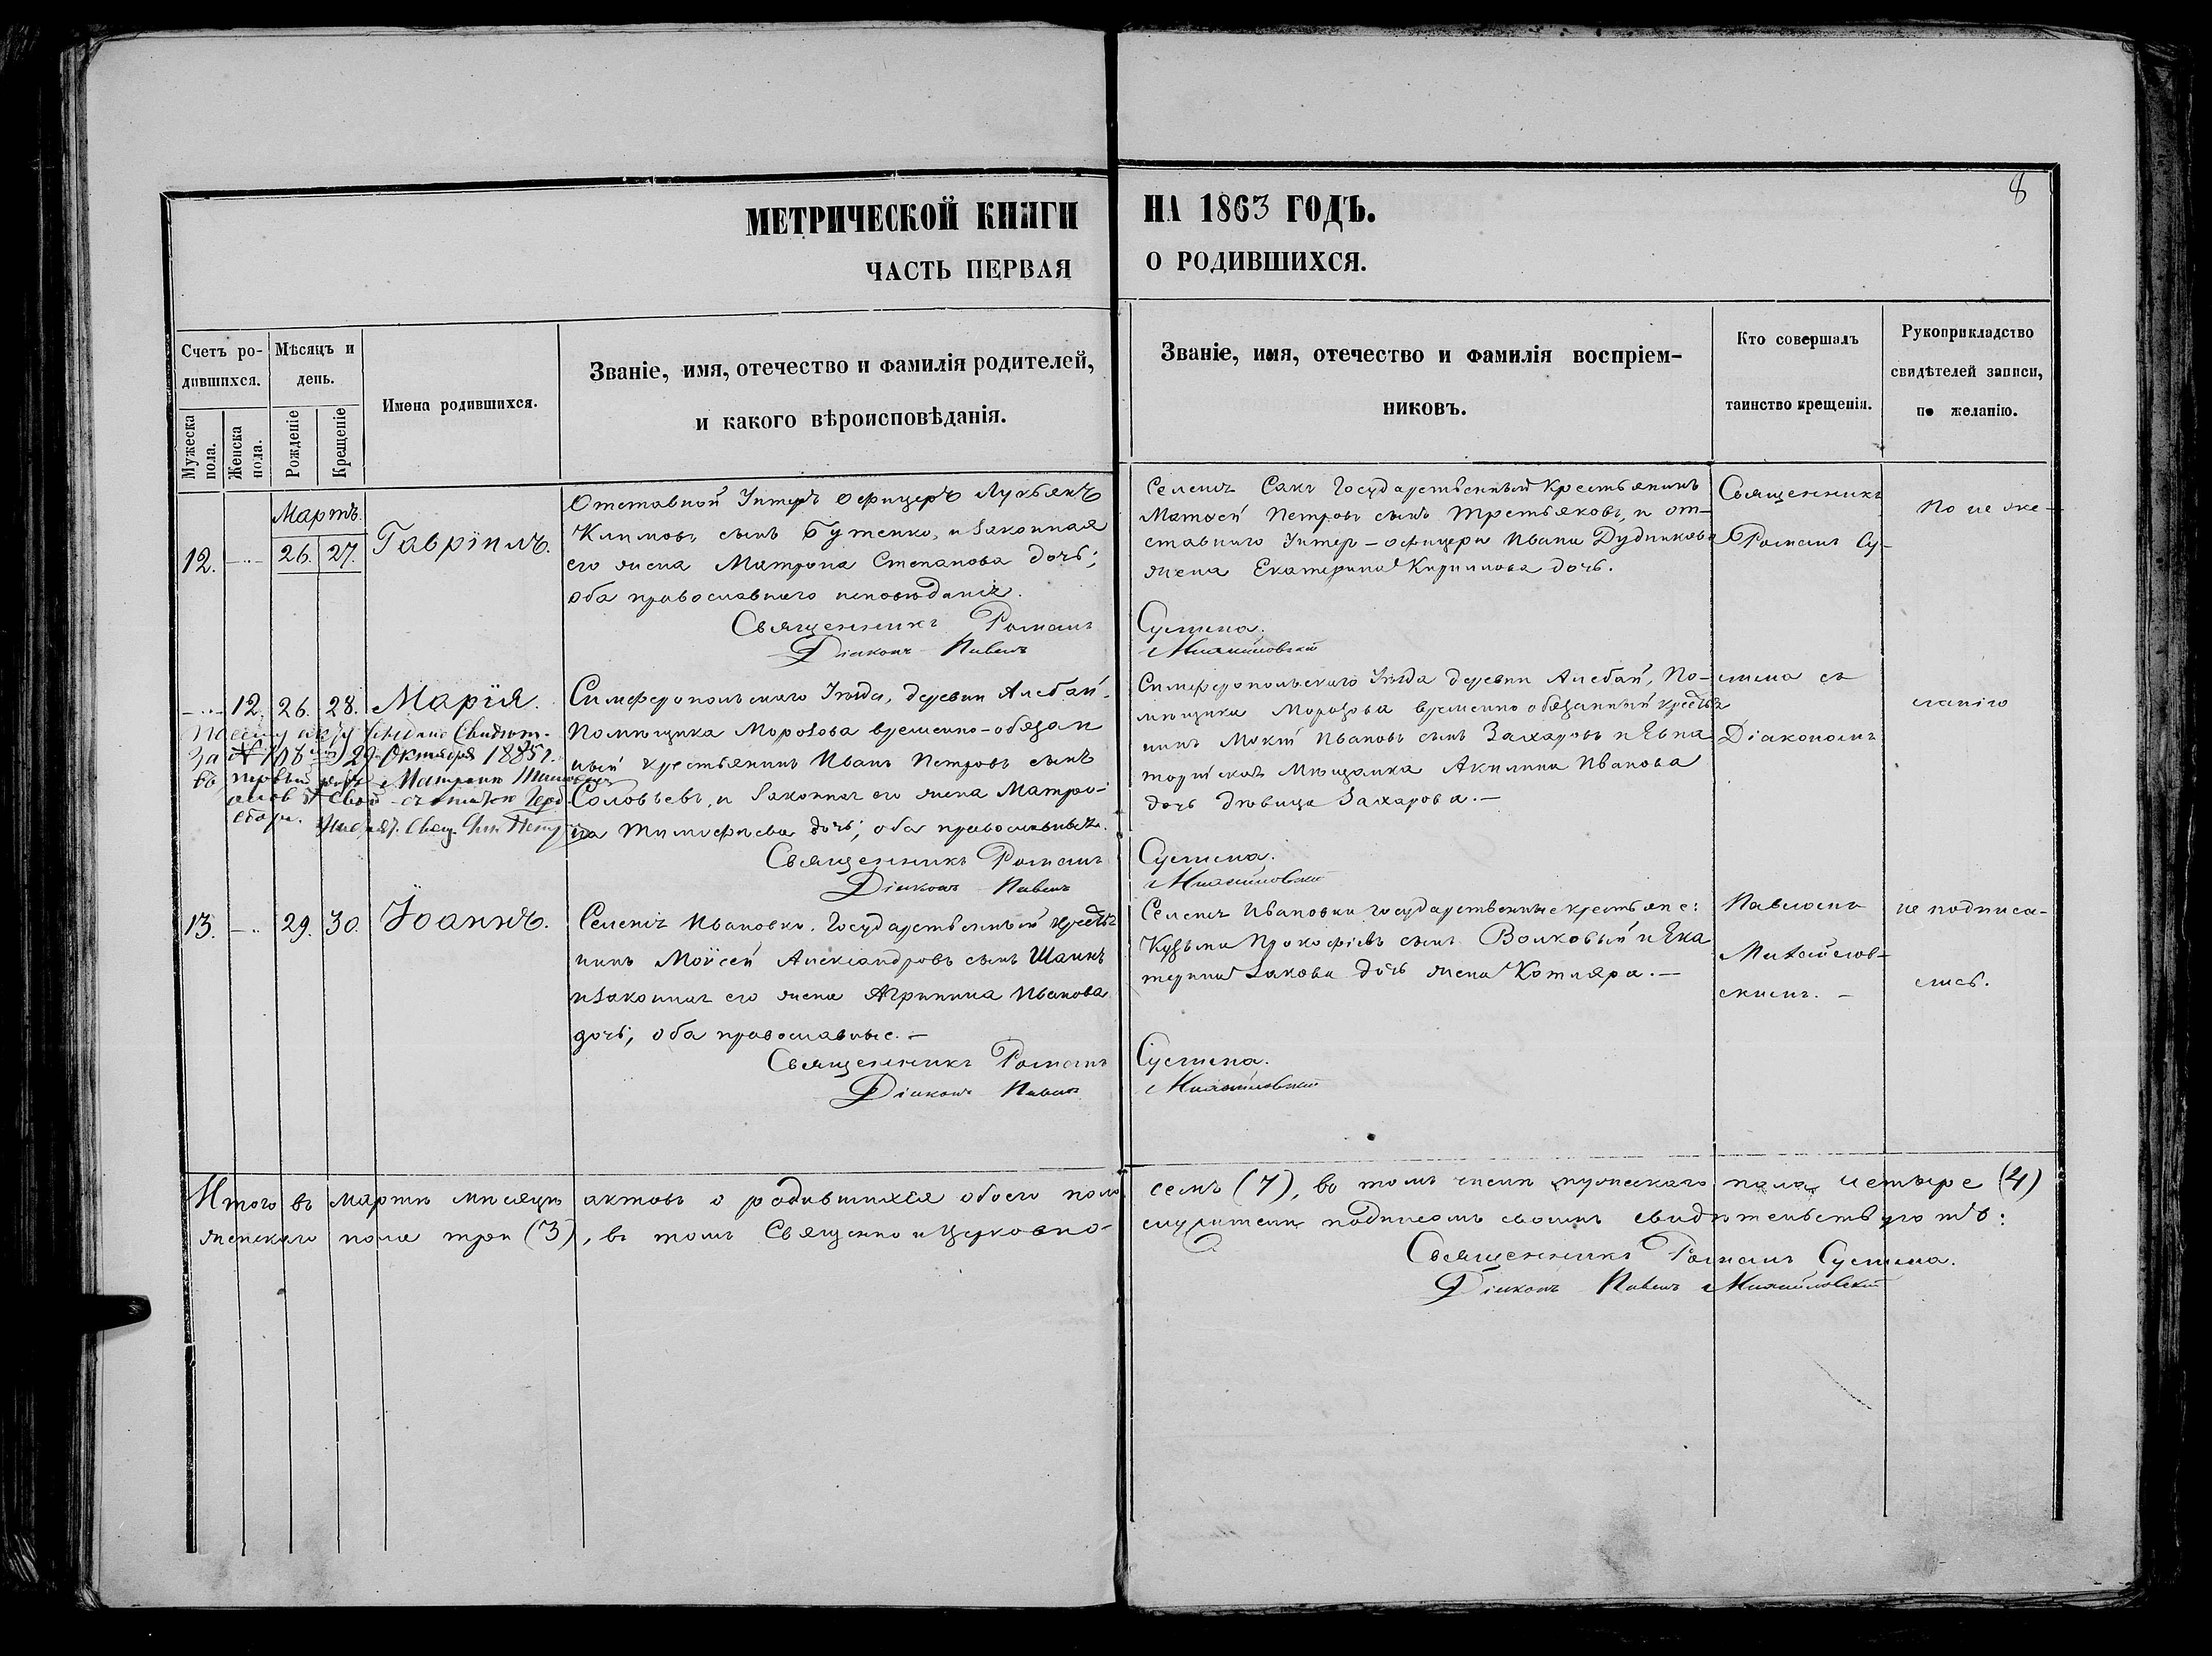 8
МЕТРИЧЕСКОЙ КНИГИ НА 1863 ГОДЪ.
ЧАСТЬ ПЕРВАЯ О РОДИВШИХСЯ.
Счетъ ро-
дившихся.
Мужеска пола.
Женска пола.
Мѣсяцъ и
день.
Рожденіе
Крещеніе
Имена родившихся.
Званіе, имя, отечество и фамилія родителей,
и какого вѣроисповѣданія.
Званіе, имя, отечество и фамилія воспріем-
никовъ.
Кто совершалъ
таинство крещенія.
Рукоприкладство
свидѣтелей записи,
по желанію.
Мартъ.
12. 26. 27. Гавріилъ.
Отставной Унтеръ офицеръ Лукьянъ
Климовъ сынъ Бутенко, и законная
его жена Матрона Степанова дочь;
оба православнаго исповѣданія.
Священникъ Романъ
Діаконъ Павелъ
Селенія Сакъ Государственный крестьянинъ
Матѳей Петровъ сынъ Третьяковъ, и от-
ставнаго Унтер-офицера Ивана Дудникова
жена Екатерина Кирилова дочь.
Сустина.
Михайловскій
Священникъ
Романъ Су-
По не же-
12. 26. 28. Марія.
за № 29 Октября 1885 г.
Симферопольскаго Уѣзда, деревни Алебай,
Помѣщика Морозова временно-обязан
ный крестьянинъ Иванъ Петровъ сынъ
Соловьевъ, и законная его жена Матро-
на Тимофѣева дочь; оба православные.
Священникъ Романъ
Діаконъ Павелъ
Симферопольскаго Уѣзда деревни Алебай, По-
мѣщика Морозова временно обязанный крестья
нинъ Мокій Ивановъ сынъ Захаровъ и Евпа
торійская Мѣщанка Акилина Иванова
дочь дѣвица Захарова.—
Сустина.
Михайловскій
стина съ
Діакономъ
ланію
13. 29. 30. Іоаннъ.
Селенія Ивановки, Государственный крестья
нинъ Моѵсей Александровъ сынъ Шаинъ
и законная его жена Агрипина Иванова
дочь, оба православные.—
Священникъ Романъ
Діаконъ Павелъ
Селенія Ивановки государственные крестьяне:
Кузьма Прокофіевъ сынъ Волковый и Ека
терина Іакова дочь жена Котляра.—
Сустина.
Михайловскій
Павломъ
Михайлов-
скимъ.—
не подписа-
лись.
Итого въ мартѣ мѣсяцѣ актовъ о родившихся обоего пола семь (7), въ томъ числѣ мужескаго пола четыре (4)
женскаго пола три (3), въ томъ Священно и Церковно- служители подписомъ своимъ свидѣтельствуютъ:
Священникъ Романъ Сустина.
Діаконъ Павелъ Михайловскій